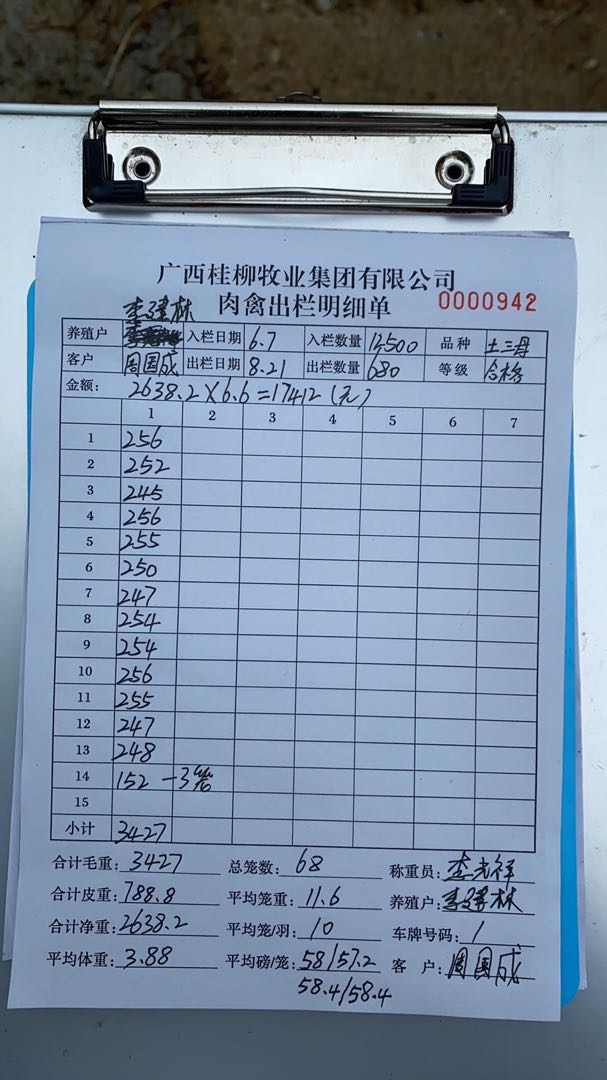 广西桂柳牧业集团有限公司
肉禽出栏明细单 0000942
李建林
养殖户 入栏日期 6.7 入栏数量 12500 品种 土三母
客户 周国成 出栏日期 8.21 出栏数量 680 等级 合格
金额: 2638.2×6.6=17412(元)
1 2 3 4 5 6 7
1 256
2 252
3 245
4 256
5 255
6 250
7 247
8 254
9 254
10 256
11 255
12 247
13 248
14 152 -3笼
15
小计 3427
合计毛重: 3427 总笼数: 68 称重员: 李光祥
合计皮重: 788.8 平均笼重: 11.6 养殖户: 李建林
合计净重: 2638.2 平均笼/羽: 10 车牌号码: 1
平均体重: 3.88 平均磅/笼: 58/57.2 客户: 周国成
58.4/58.4